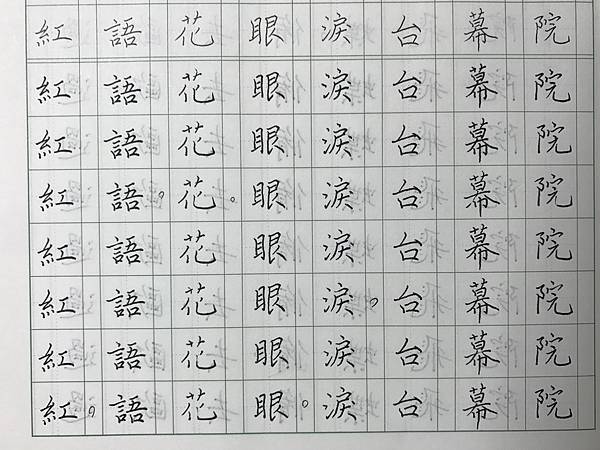 院院院院院院院院
幕幕幕幕幕幕幕幕
台台台台台台台台
淚淚淚淚淚淚淚淚
眼眼眼眼眼眼眼眼
花花花花花花花花
語語語語語語語語
紅紅紅紅紅紅紅紅